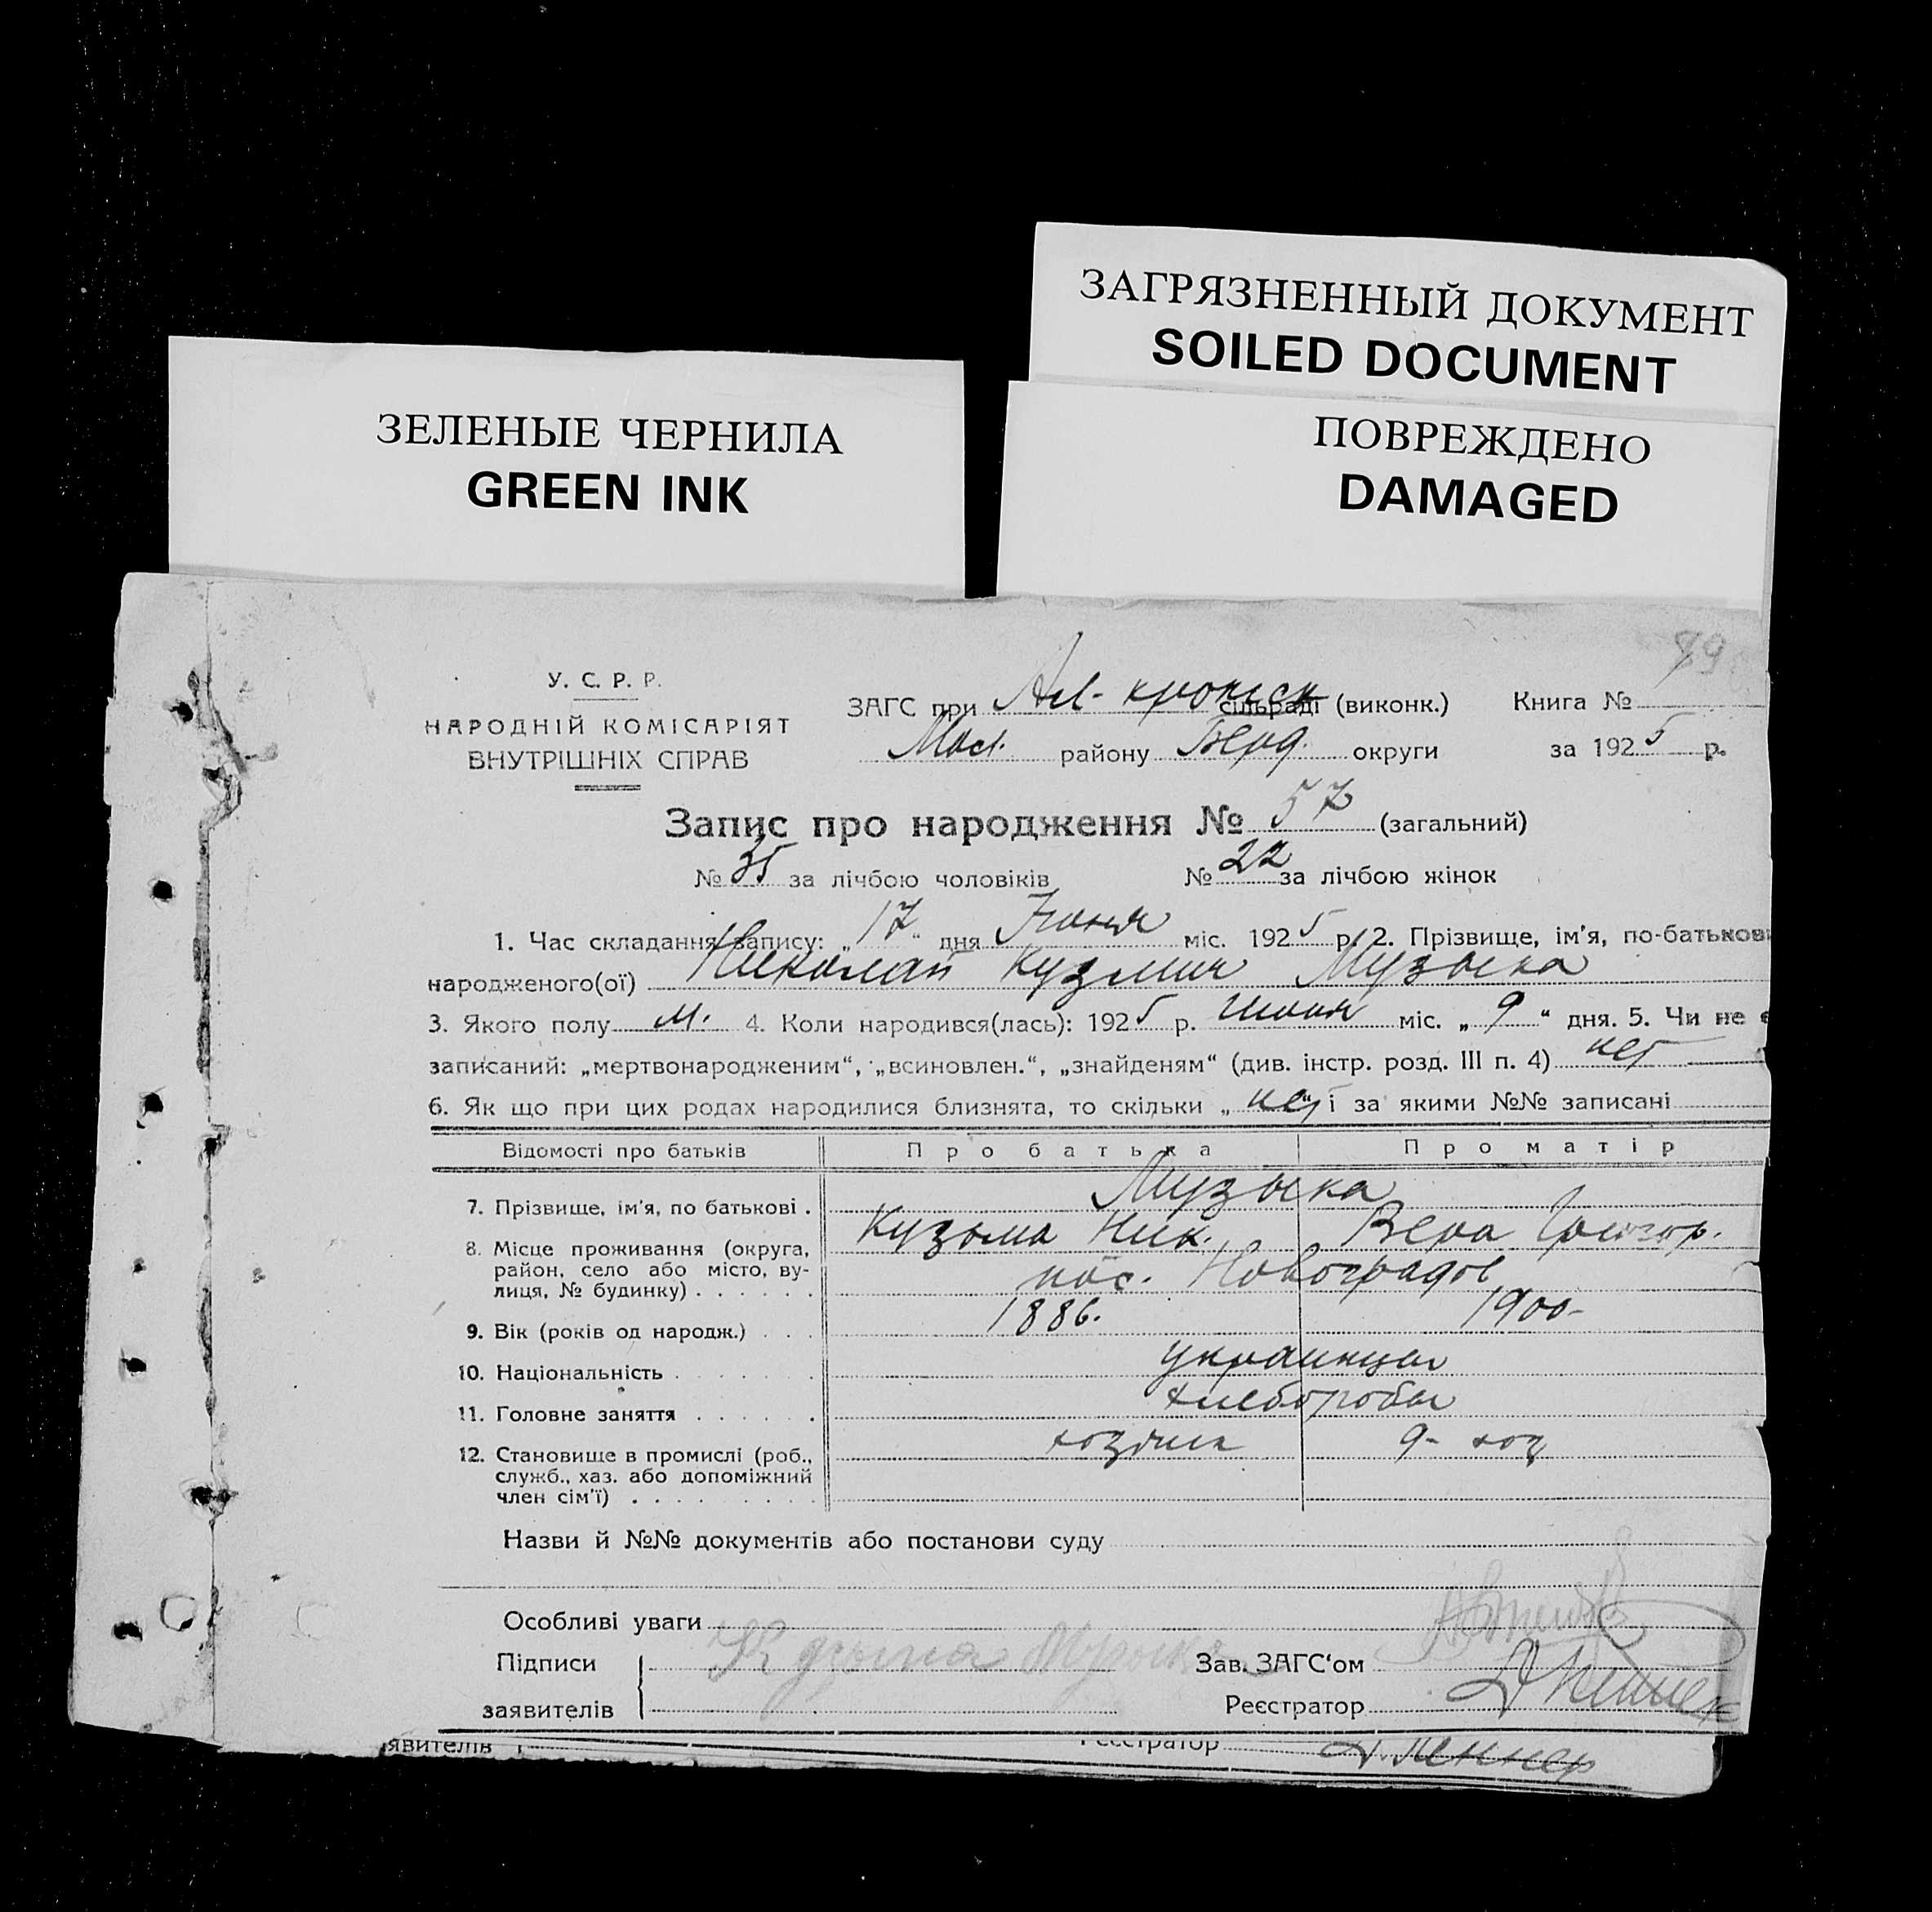 ЗАГРЯЗНЕННЫЙ ДОКУМЕНТ
SOILED DOCUMENT
ЗЕЛЕНЫЕ ЧЕРНИЛА
GREEN INK
ПОВРЕЖДЕНО
DAMAGED
89
У. С. Р. Р.
НАРОДНІЙ КОМІСАРІЯТ
ВНУТРІШНІХ СПРАВ
ЗАГС при сільраді (виконк.) Книга №
району Берд. округи за 1925 р.
Запис про народження № 57 (загальний)
№ 35 за лічбою чоловіків № 22 за лічбою жінок
1. Час складання запису: „17" дня Июня міс. 1925 р. 2. Прізвище, ім'я, по-батькові
народженого(ої) Николай Кузмич Музыка
3. Якого полу м. 4. Коли народився(лась): 1925 р. июня міс. „9" дня. 5. Чи не є
записаний: „мертвонародженим", „всиновлен.", „знайденям" (див. інстр. розд. III п. 4) нет
6. Як що при цих родах народилися близнята, то скільки „нет" і за якими №№ записані
Відомості про батьків Про батька Про матір
7. Прізвище, ім'я, по батькові . Музыка
Кузьма Ник. Вера Григор.
8. Місце проживання (округа,
район, село або місто, ву-
лиця, № будинку) . . . . . . пос. Новоградов
9. Вік (років од народж.) . . . 1886. 1900-
10. Національність . . . . . . . украинцы
11. Головне заняття . . . . . . хлеборобы
12. Становище в промислі (роб.,
служб., хаз. або допоміжний
член сім'ї) . . . . . . . . .
Назви й №№ документів або постанови суду
Особливі уваги
Підписи Кузьма Музыка Зав. ЗАГС'ом
заявителів Реєстратор
явителів Реєстратор